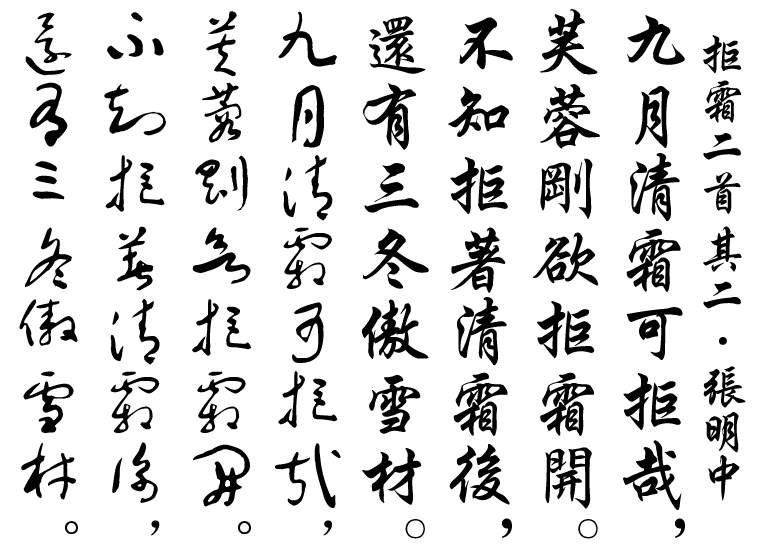 拒霜二首其二·張明中
九月清霜可拒哉，
芙蓉剛欲拒霜開。
不知拒著清霜後，
還有三冬傲雪材。
九月清霜可拒哉，
芙蓉剛欲拒霜開。
不知拒著清霜後，
還有三冬傲雪材。